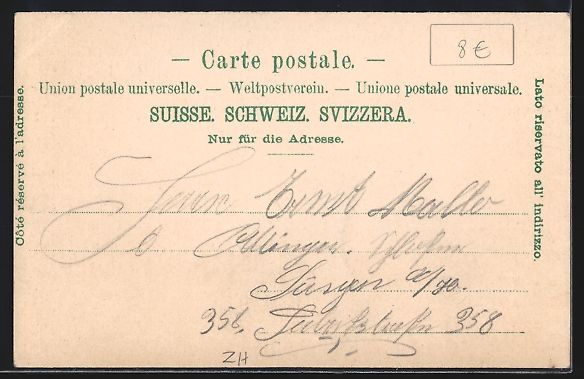 8 €
— Carte postale. —
Union postale universelle. — Weltpostverein. — Unione postale universale.
SUISSE. SCHWEIZ. SVIZZERA.
Nur für die Adresse.
Côté réservé à l'adresse.
Lato riservato all' indirizzo.
Herrn Ernst
358
ZH